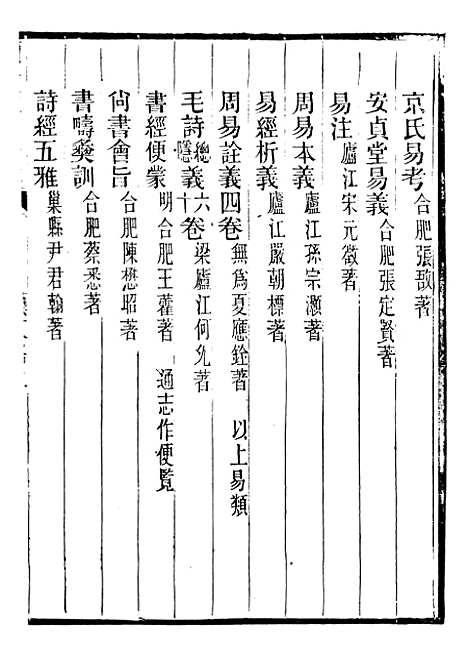 京氏易考合肥張敔著
安貞堂易義合肥張定賢著
易注廬江宋元徵著
周易本義廬江孫宗灝著
易經析義廬江嚴朝標著
周易詮義四卷無為夏應銓著 以上易類
毛詩總隱義十六卷卷梁廬江何允著
書經便蒙明合肥王藿著 通志作便覧
尙書會旨合肥陳懋昭著
書疇彝訓合肥蔡悉著
詩經五雅巢縣尹君翰著